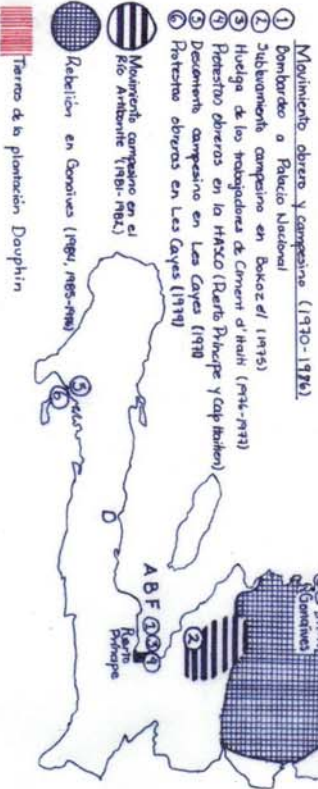 Movimiento obrero y campesino (1970-1986)
① Bombardeo a Palacio Nacional
② Sublevamiento campesino en Bokozel (1975)
③ Huelga de los trabajadores de Ciment d'Haiti (1976-1977)
④ Protestas obreras en la HASCO (Puerto Príncipe y Cap Haitien)
⑤ Descontento campesino en Les Cayes (1979)
⑥ Protestas obreras en Les Cayes (1979)
Movimiento campesino en el
Río Artibonite (1981-1982)
Rebelión en Gonaïves (1984, 1985-1986)
Tierras de la plantación Dauphin
Gonaïves
②
A B F ① ③ ④
Puerto
Príncipe
D
⑤
⑥